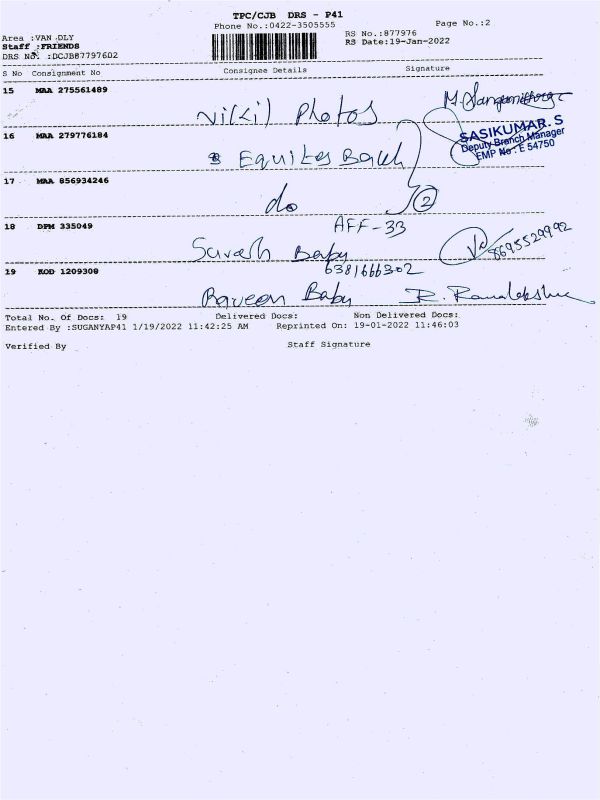 TPC/CJB DRS - P41
Phone No.:0422-3505555
Page No.:2
Area :VAN DLY
RS No.:877976
Staff :FRIENDS
RS Date:19-Jan-2022
DRS No. :DCJB87797602
S No Consignment No Consignee Details Signature
15 MAA 275561489
Vi(Ki) Photos M.
16 MAA 279776184
SASIKUMAR. S
Deputy Branch Manager
EMP No : E 54750
Equitas Bank
17 MAA 856934246
do 2
18 DPM 335049 AFF-33
Baby 8695529992
19 KOD 1209308 6381666302
Baby R.
Total No. Of Docs: 19 Delivered Docs: Non Delivered Docs:
Entered By :SUGANYAP41 1/19/2022 11:42:25 AM Reprinted On: 19-01-2022 11:46:03
Verified By Staff Signature